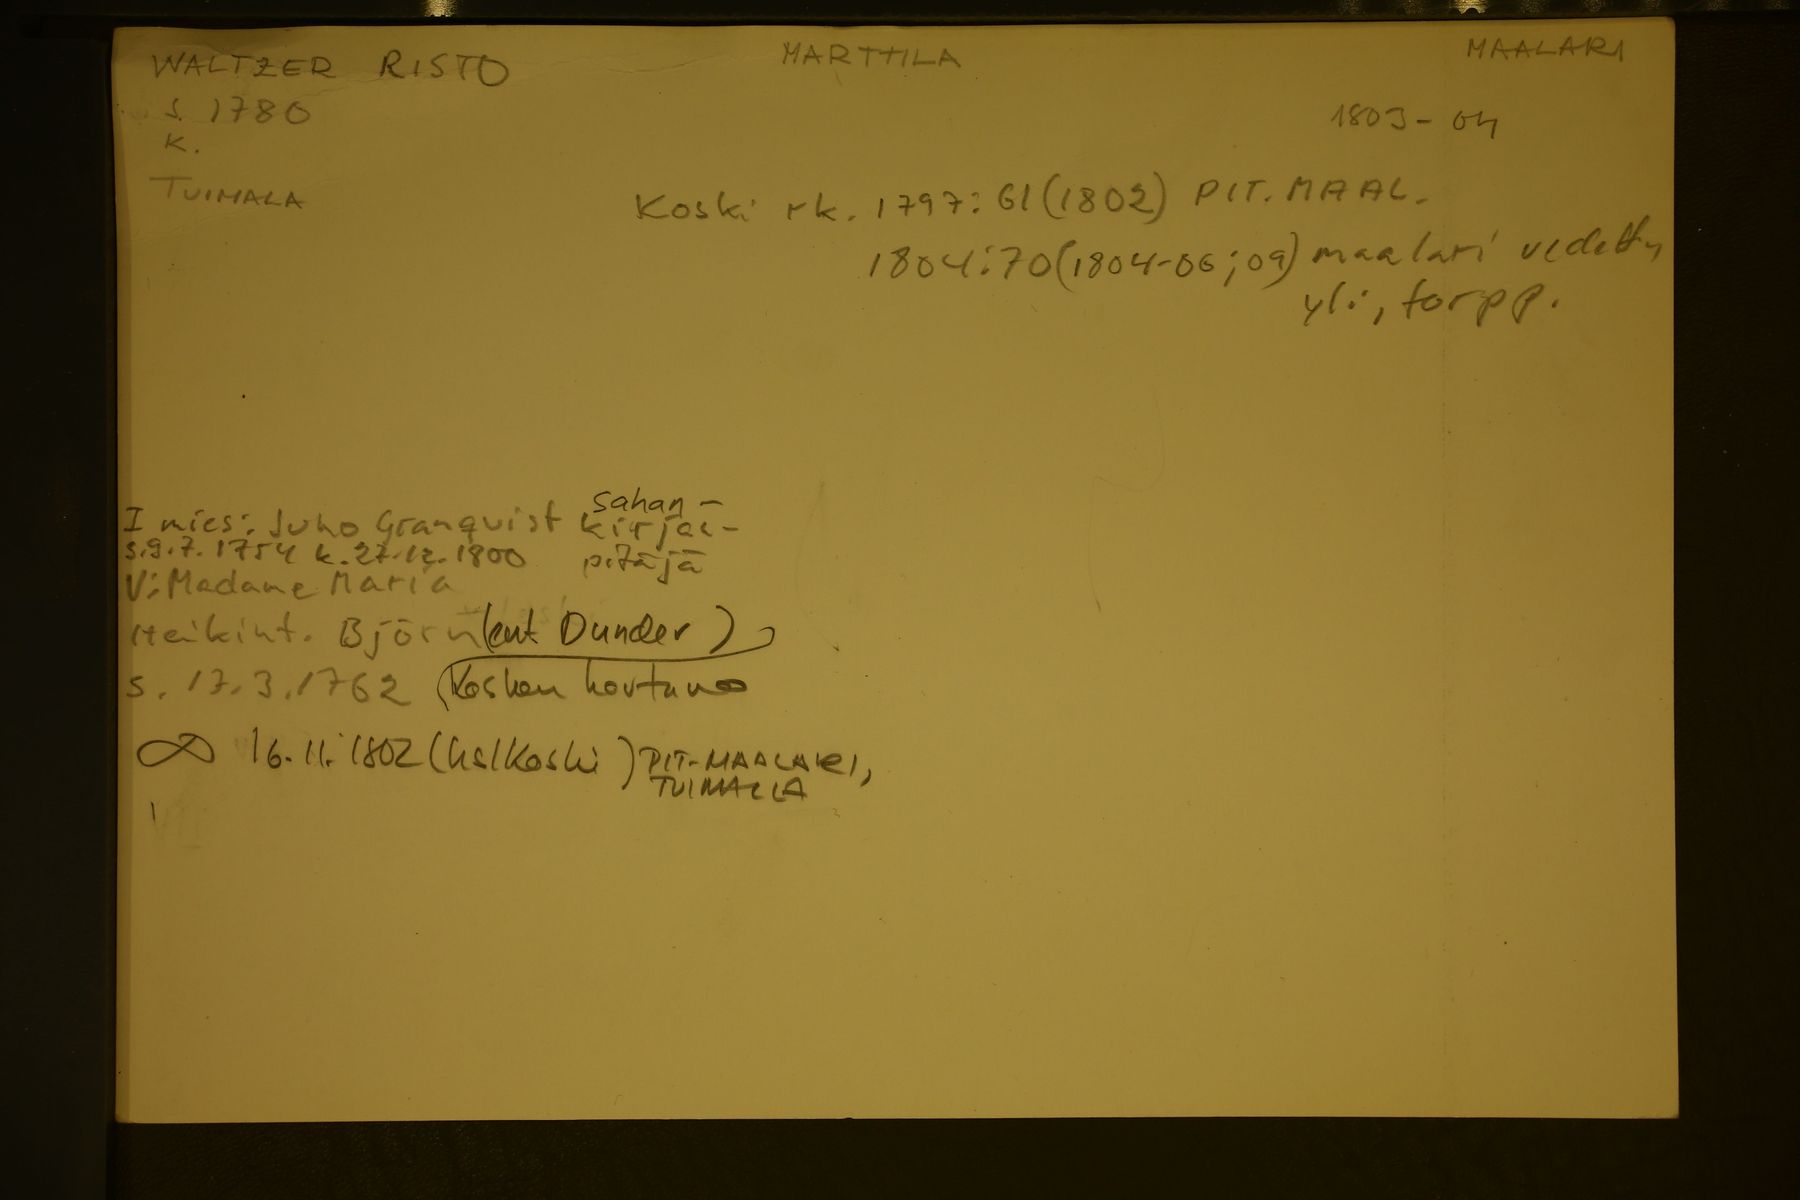 WALTZER RISTO MARTTILA MAALARI
s. 1780
1803-04
k.
TUIMALA
Koski rk. 1797:61(1802) PIT.MAAL.
1804:70(1804-06;09) maalari vedetty
yli, torpp.
I mies: Juho Granqvist sahan-
kirjan-
s.9.7.1754 k.27.12.1800 pitäjä
V:Madame Maria
Heikint. Björn (ent Dunder)
s. 17.3.1762 (Kosken
∞ 16.11.1802 (hslKoski) PIT-MAALARI,
TUIMALLA